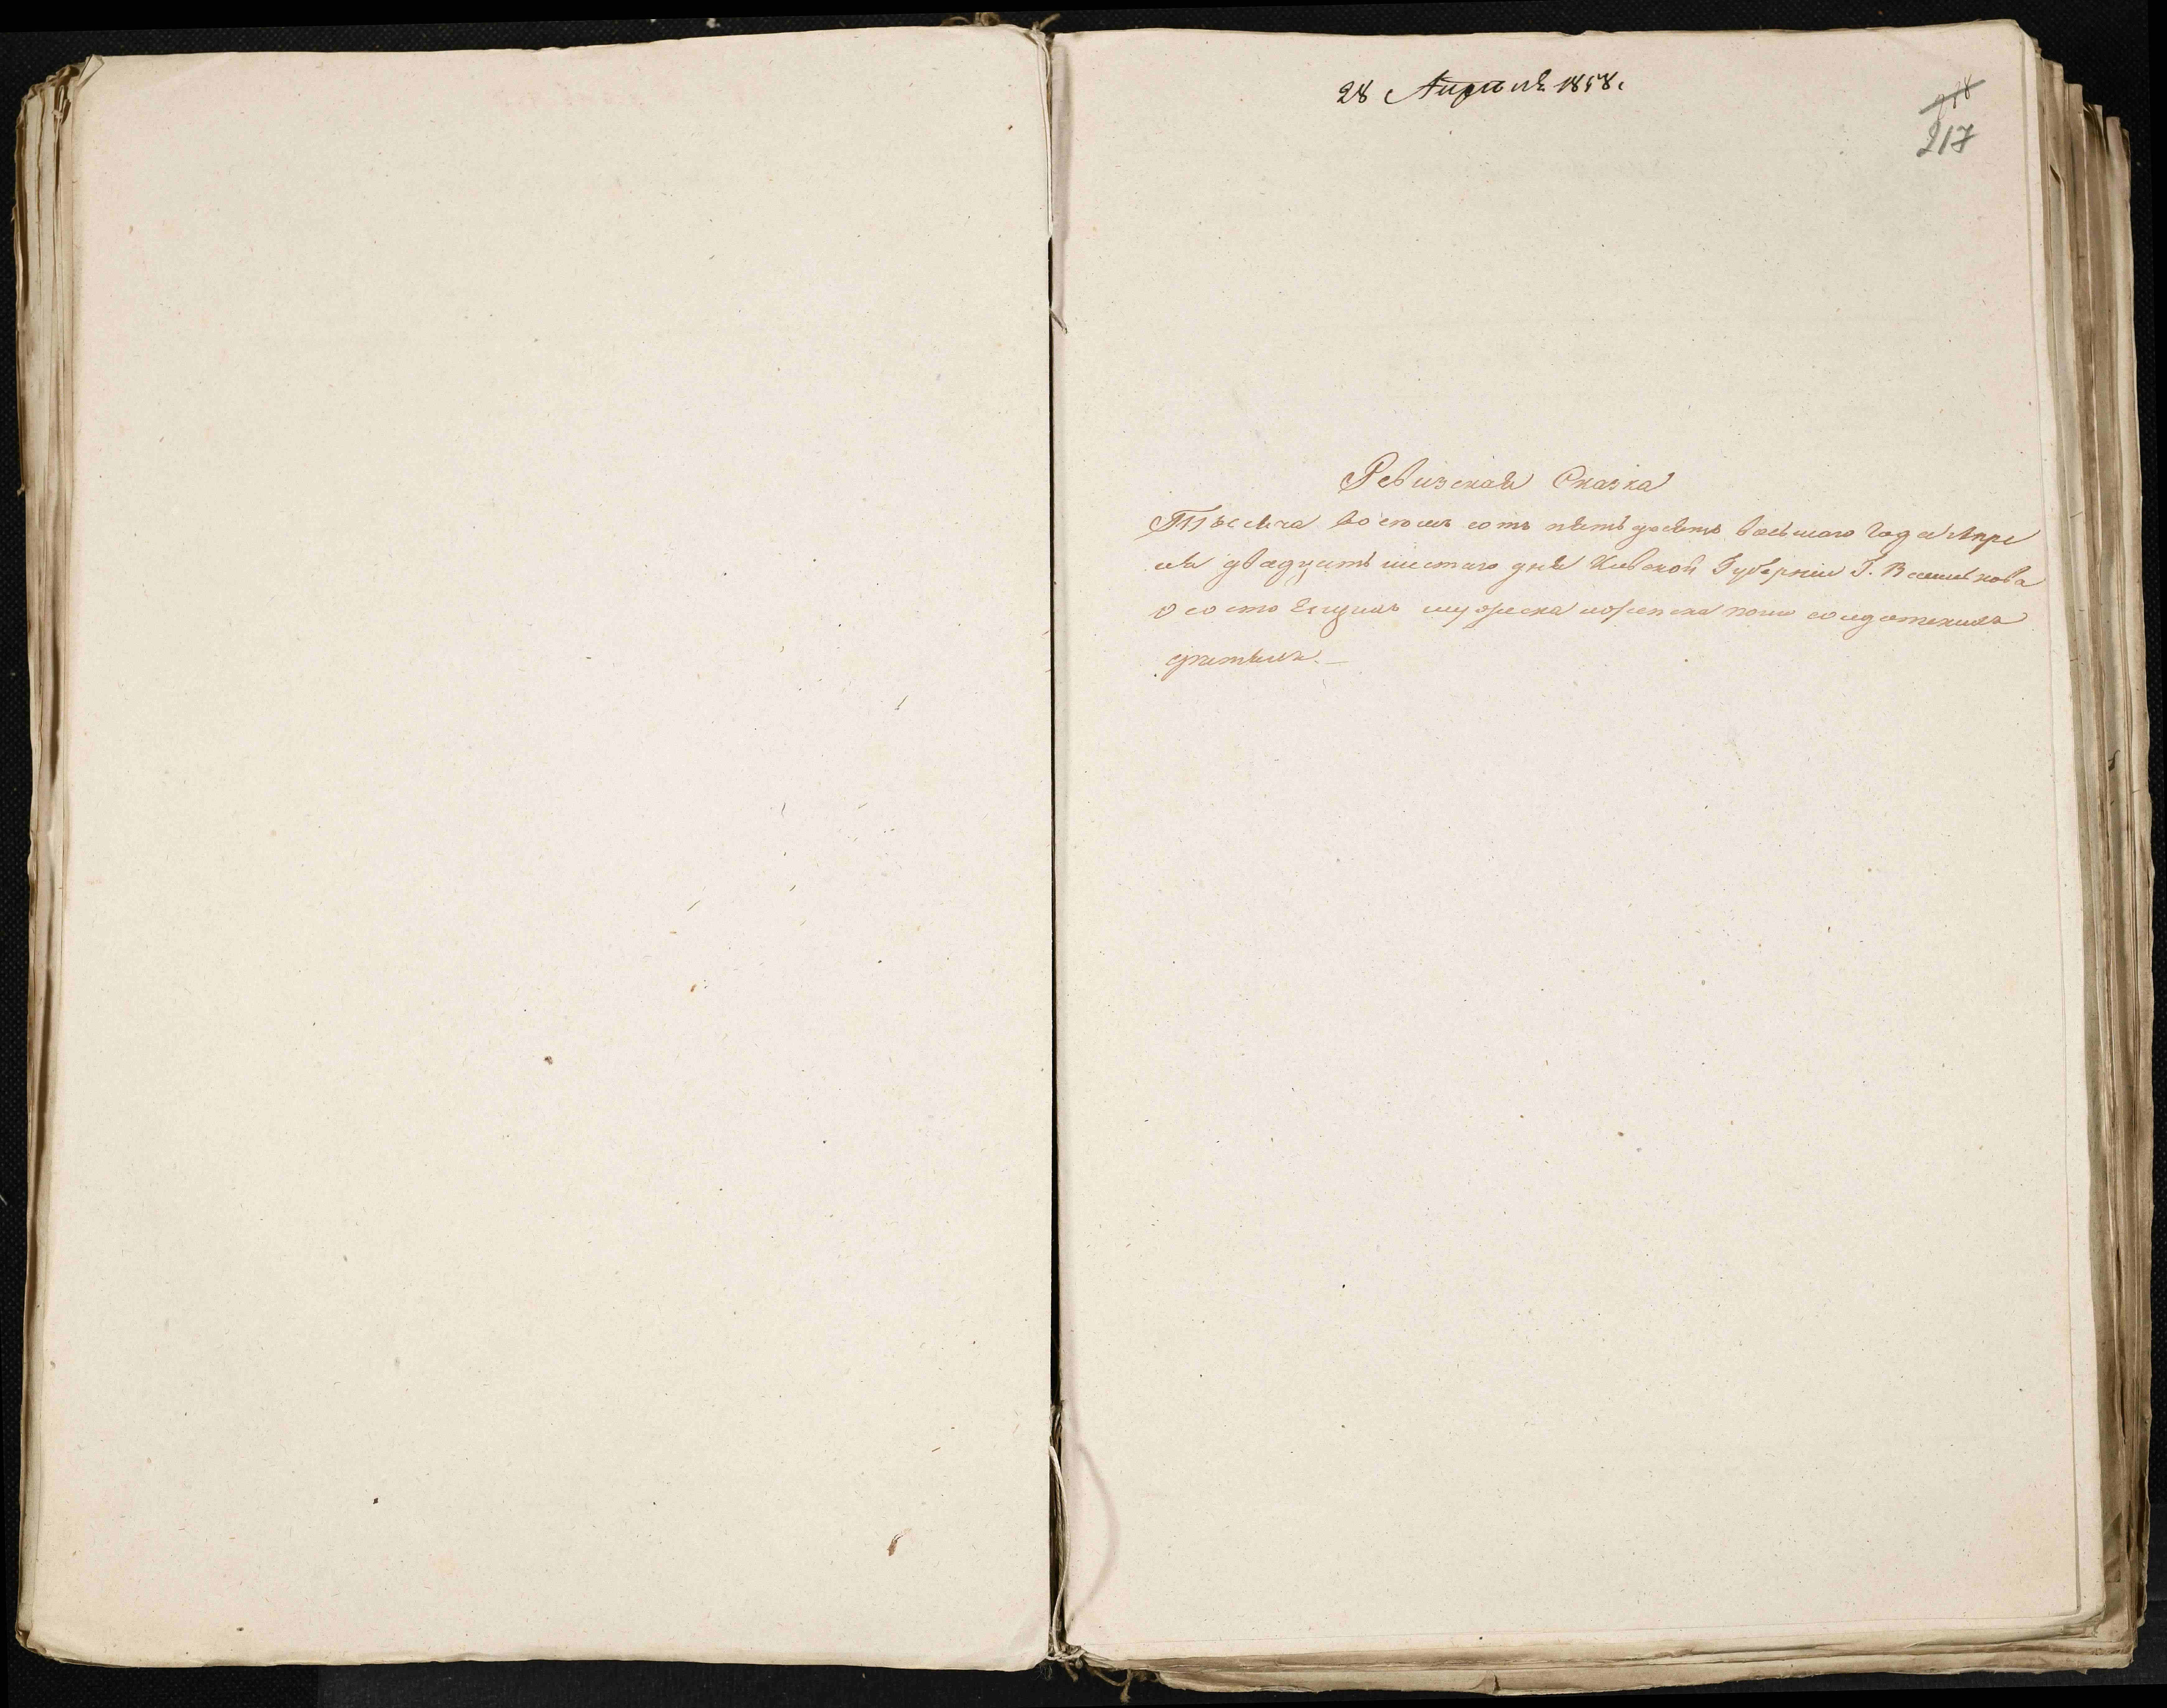 28 Апреля 1858.
218
217
Ревизская Сказка
Тысяча восемь сотъ пятьдесятъ восьмаго года Апре
ля двадцать шестаго дня Киевской Губернии Г. Василькова
о состоящихъ мужеска и женска пола солдатскихъ
дѣтяхъ. —